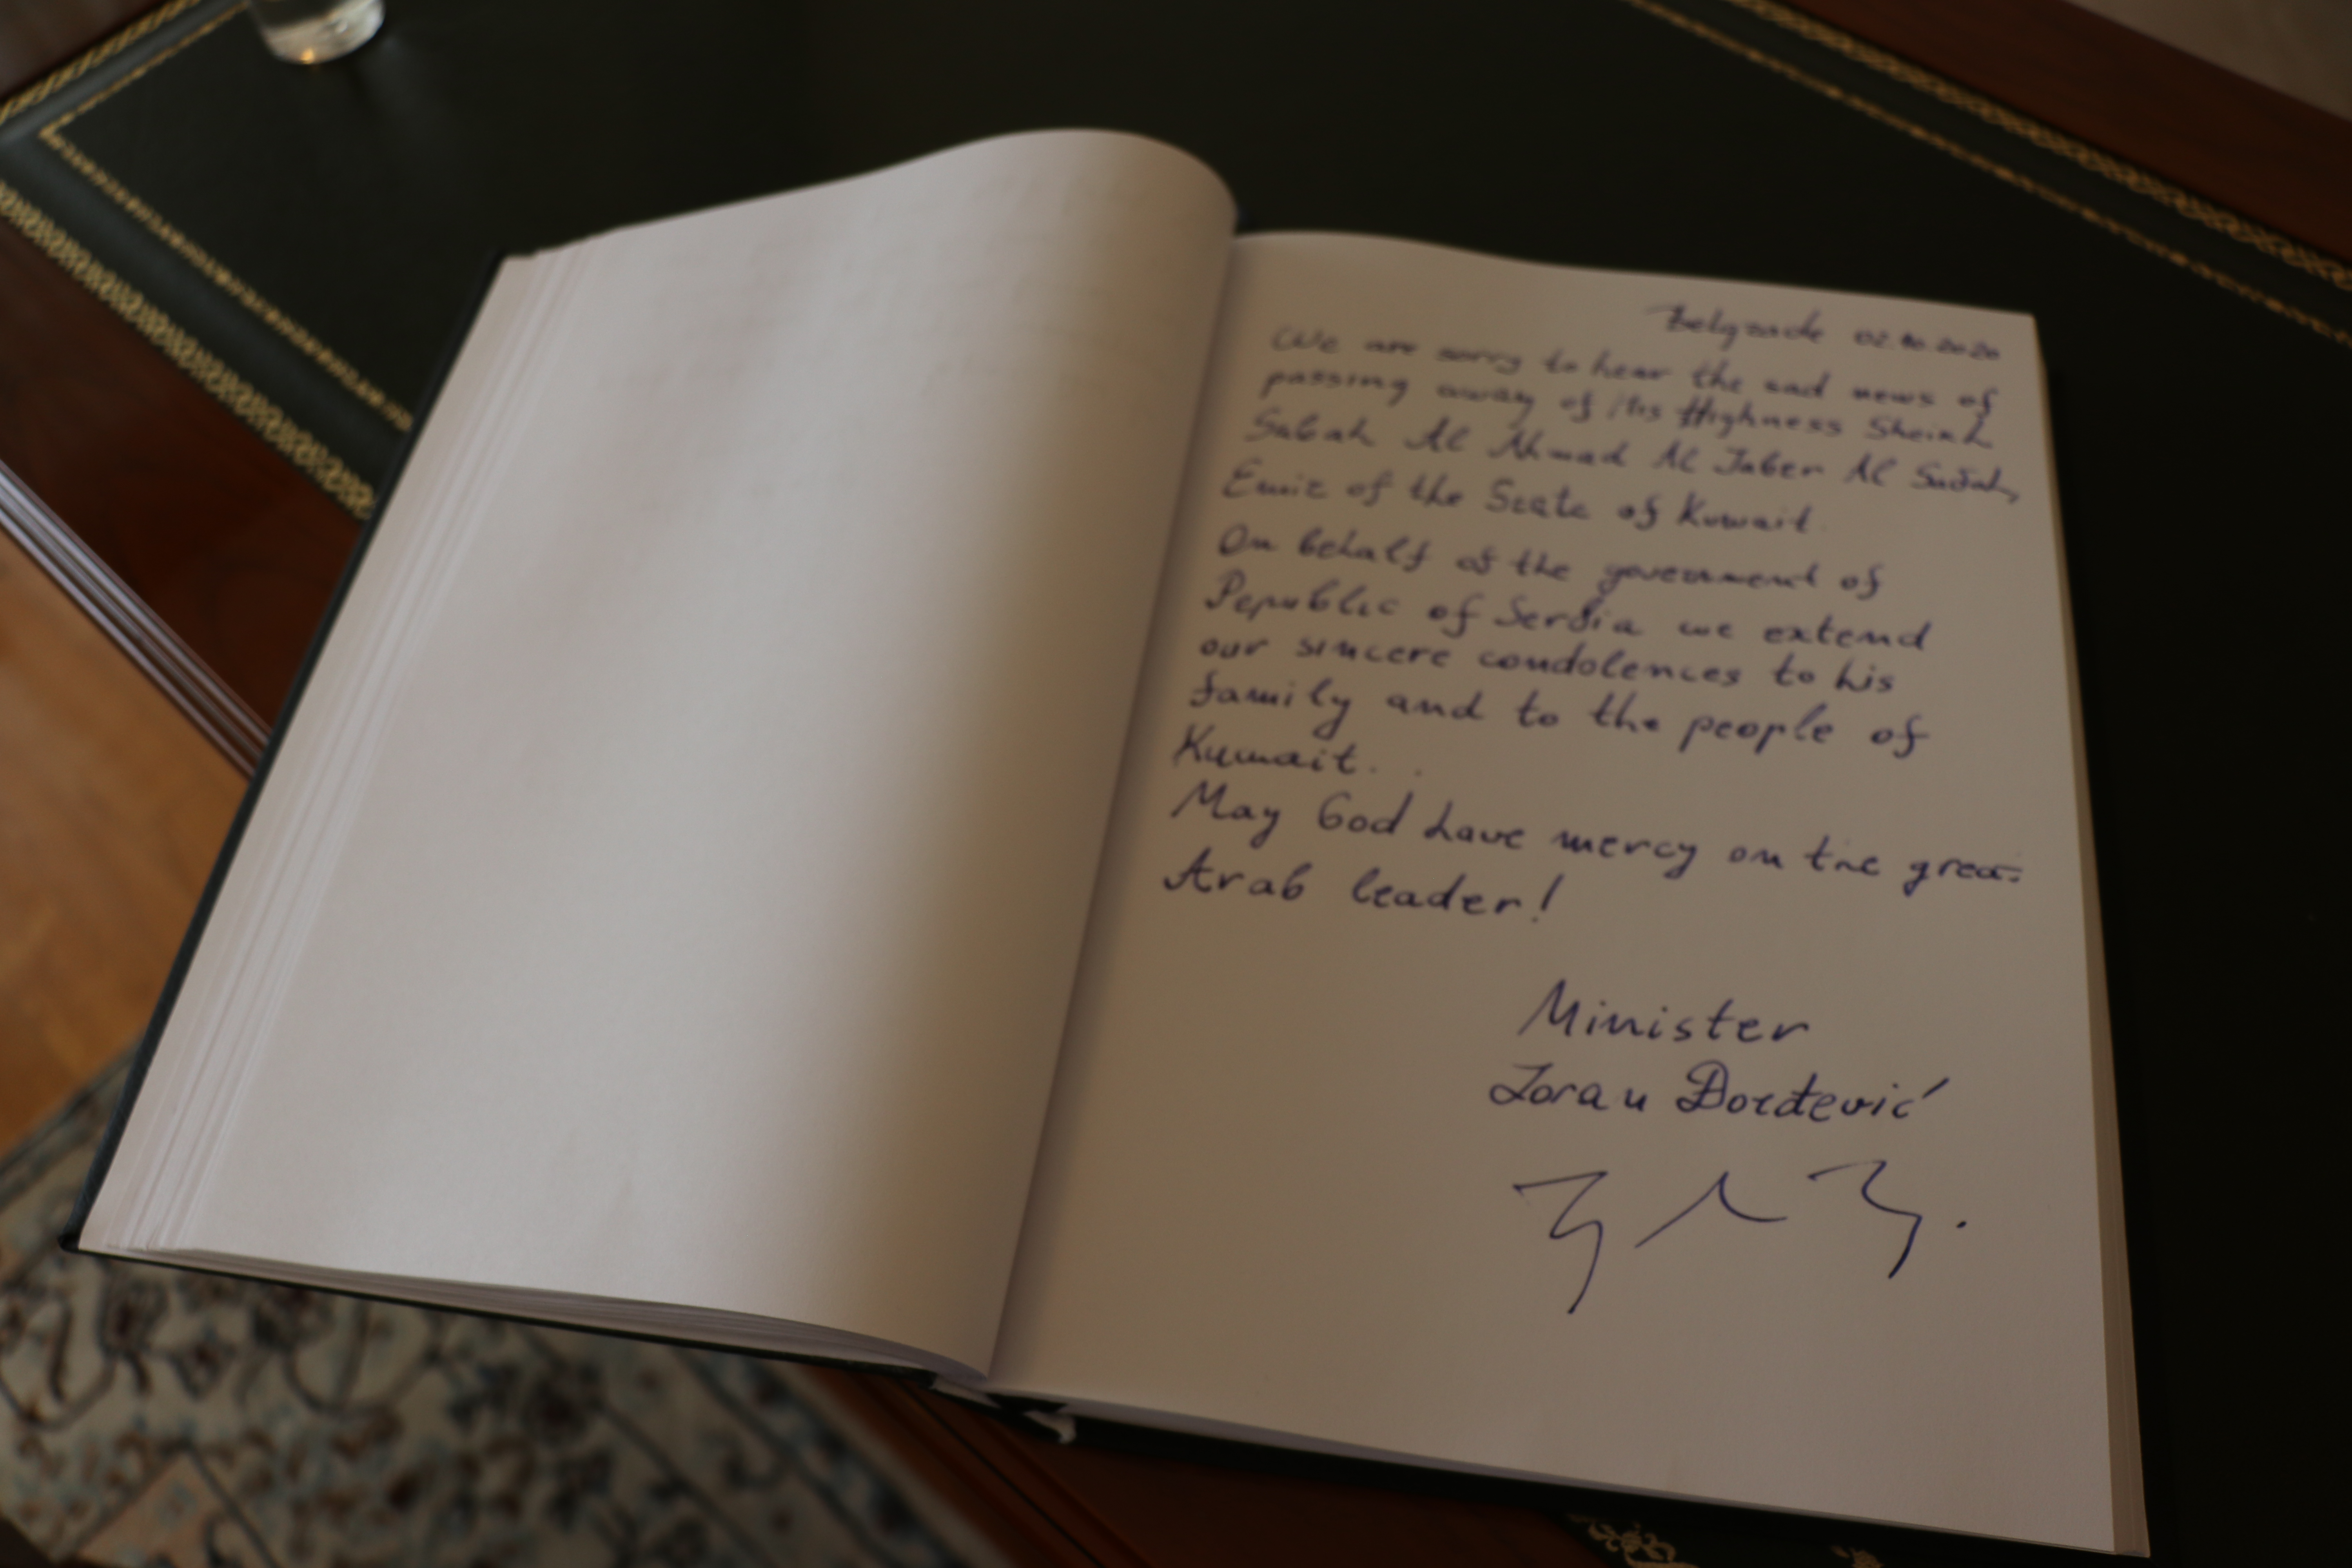 Belgrade 02.10.2020
We are sorry to hear the sad news of
passing away of His Highness Sheikh
Sabah Al Ahmad Al Jaber Al Sabah,
Emir of the State of Kuwait.
On behalf of the government of
Republic of Serbia we extend
our sincere condolences to his
family and to the people of
Kuwait.
May God have mercy on the great
Arab leader!
Minister
Zoran Đorđević